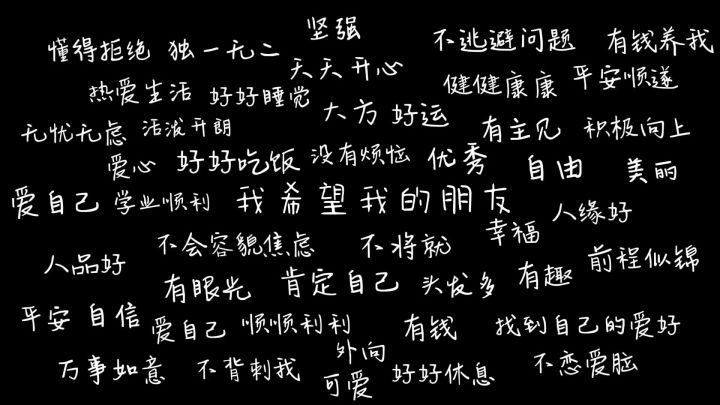 坚强
懂得拒绝 独一无二 不逃避问题 有钱养我
天天开心
热爱生活 好好睡觉 健健康康 平安顺遂
大方 好运
无忧无虑 活泼开朗 有主见 积极向上
爱心 好好吃饭 没有烦恼 优秀 自由 美丽
爱自己 学业顺利 我希望我的朋友 人缘好
不会容貌焦虑 不将就 幸福
人品好 前程似锦
有眼光 肯定自己 头发多 有趣
平安 自信 爱自己 顺顺利利 有钱 找到自己的爱好
外向
万事如意 不背刺我 可爱 好好休息 不恋爱脑